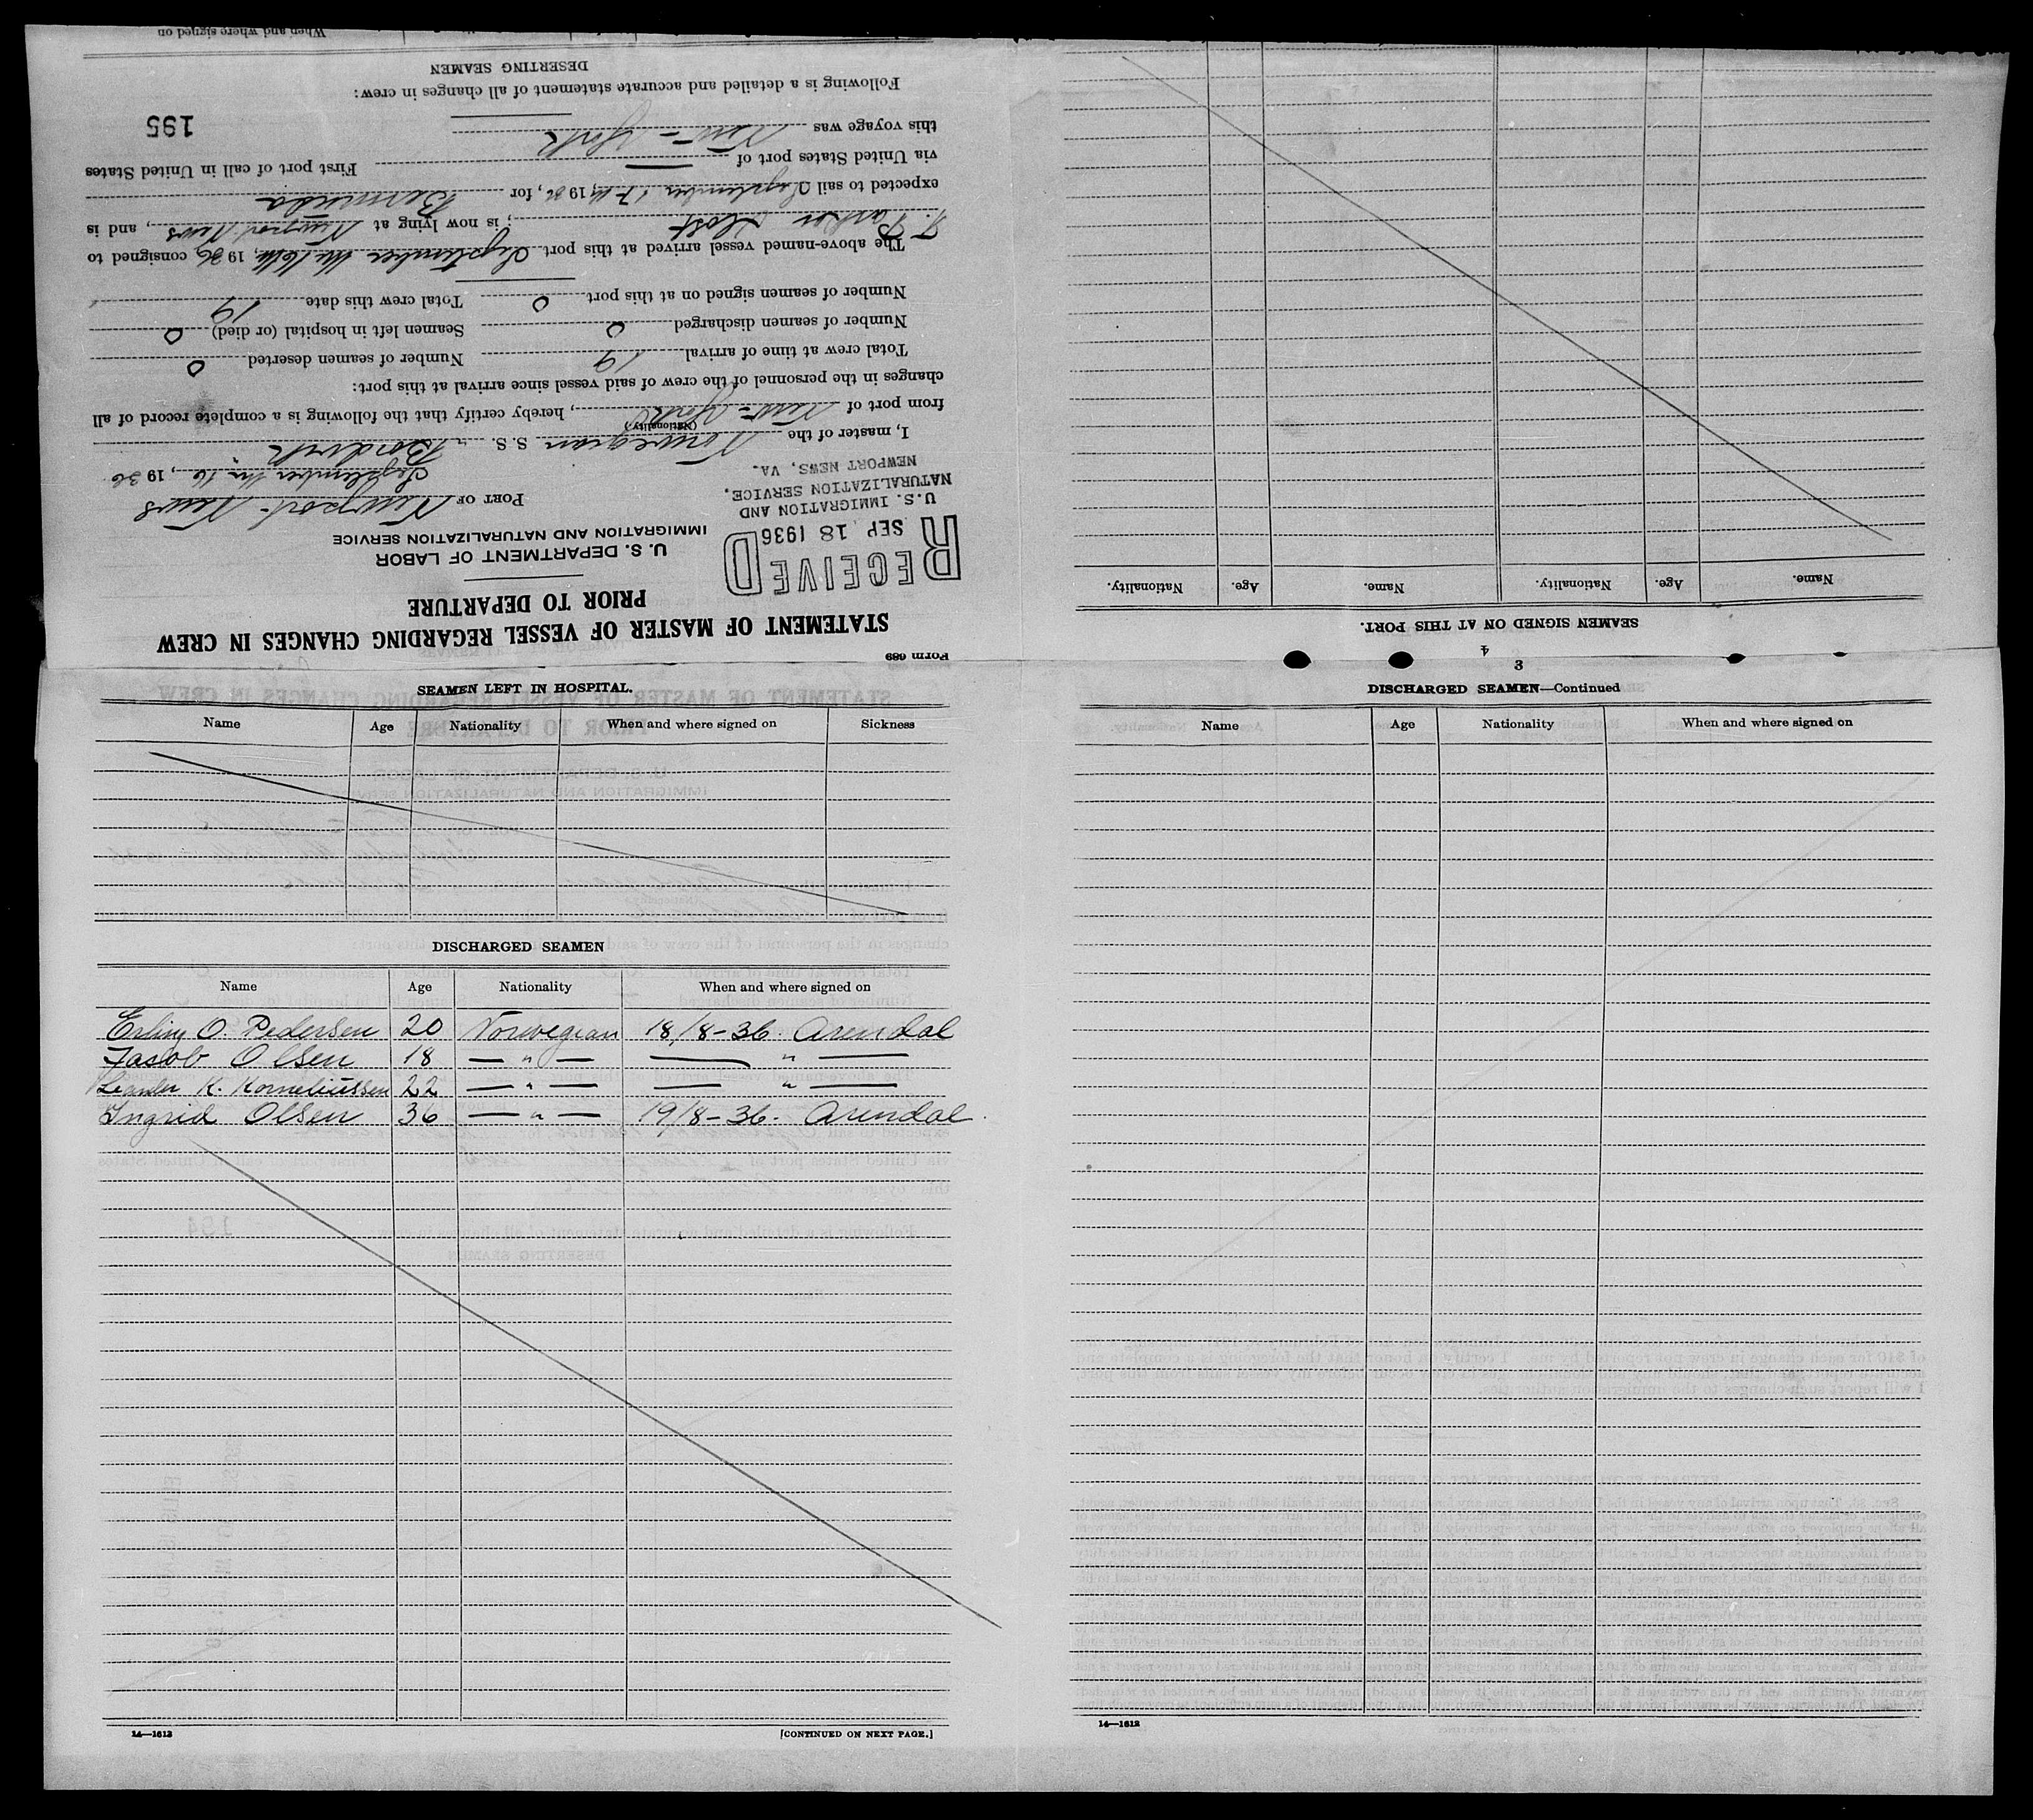 SEAMEN LEFT IN HOSPITAL.
Name Age Nationality When and where signed on Sickness
DISCHARGED SEAMEN
Name Age Nationality When and where signed on
Erling O. Pedersen 20 Norwegian 18/8-36. Arendal
Jacob Olsen 18 — " — — " —
Leander K. Korneliussen 22 — " — — " —
Ingrid Olsen 36 — " — 19/8-36. Arendal.
14—1613
[CONTINUED ON NEXT PAGE.]
3
DISCHARGED SEAMEN—Continued
Name Age Nationality When and where signed on
14—1612
4
SEAMEN SIGNED ON AT THIS PORT.
Name. Age. Nationality. Name. Age. Nationality.
Form 689
STATEMENT OF MASTER OF VESSEL REGARDING CHANGES IN CREW
PRIOR TO DEPARTURE
RECEIVED
SEP 18 1936
U.S. IMMIGRATION AND
NATURALIZATION SERVICE,
NEWPORT NEWS, VA.
U. S. DEPARTMENT OF LABOR
IMMIGRATION AND NATURALIZATION SERVICE
PORT OF Newport-News
September the 16, 1936
I, master of the Norwegian S. S. Bondvik
(Nationality)
from port of New-York, hereby certify that the following is a complete record of all
changes in the personnel of the crew of said vessel since arrival at this port:
Total crew at time of arrival 19 Number of seamen deserted 0
Number of seamen discharged 0 Seamen left in hospital (or died) 0
Number of seamen signed on at this port 0 Total crew this date 19
The above-named vessel arrived at this port September the 16th, 1936, consigned to
T. Parker Host; is now lying at Newport News, and is
expected to sail September 17th, 1936, for Bermuda
via United States port of — First port of call in United States
this voyage was New-York
195
Following is a detailed and accurate statement of all changes in crew:
DESERTING SEAMEN
When and where signed on